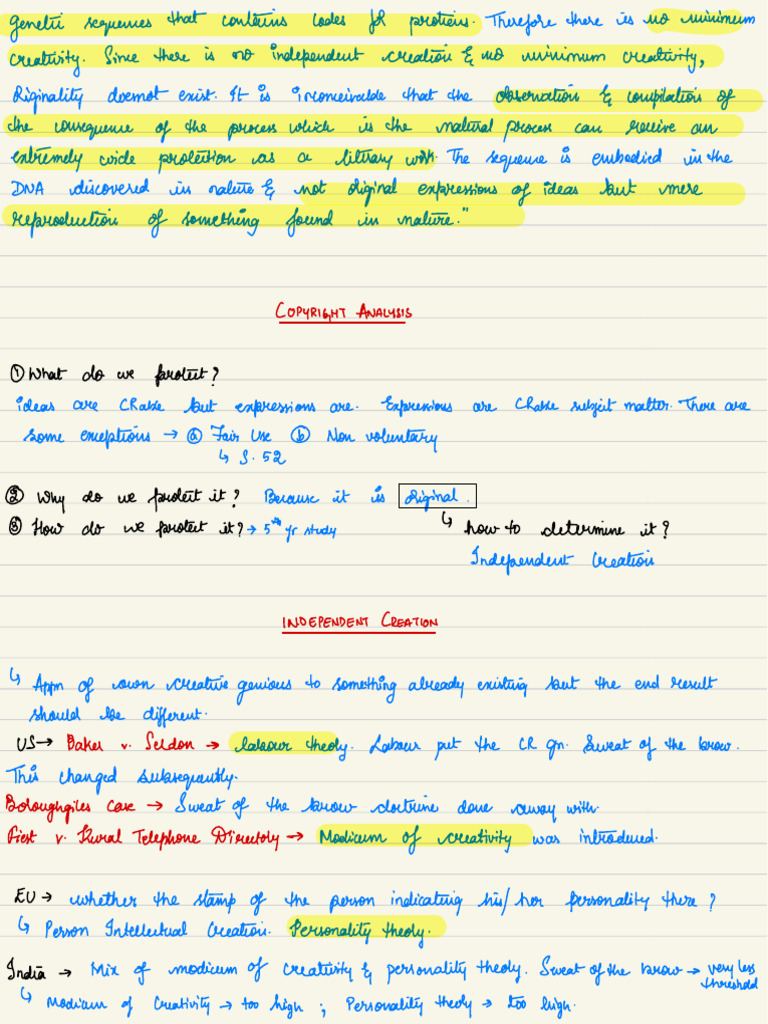 Genetic sequences that contains codes for proteins. Therefore there is no minimum
creativity. Since there is no independent creation & no minimum creativity,
Originality doesnot exist. It is inconceivable that the observation & compilation of
the consequence of the process which is the natural process can receive an
extremely wide protection as a literary work. The sequence is embodied in the
DNA discovered in nature & not original expressions of ideas but mere
reproduction of something found in nature."
COPYRIGHT ANALYSIS
① What do we protect?
ideas are CRable but expressions are. Expressions are CRable subject matter. There are
some exceptions → ⓐ Fair Use ⓑ Non voluntary
↳ S. 52
② Why do we protect it? Because it is original.
③ How do we protect it? → 5th yr study ↳ how to determine it?
Independent Creation
INDEPENDENT CREATION
↳ Appn of own creative genious to something already existing but the end result
should be different.
US → Baker v. Seldon → labour theory. Labour put the CR qn. Sweat of the brow.
This changed subsequently.
Boroughgiles Case → Sweat of the brow doctrine done away with.
Fiest v. Rural Telephone Directory → Modicum of creativity was introduced.
EU → whether the stamp of the person indicating his/her personality there?
↳ Person Intellectual Creation. Personality theory.
India → Mix of modicum of creativity & personality theory. Sweat of the brow → very less threshold
↳ Modicum of Creativity → too high ; Personality theory → too high.